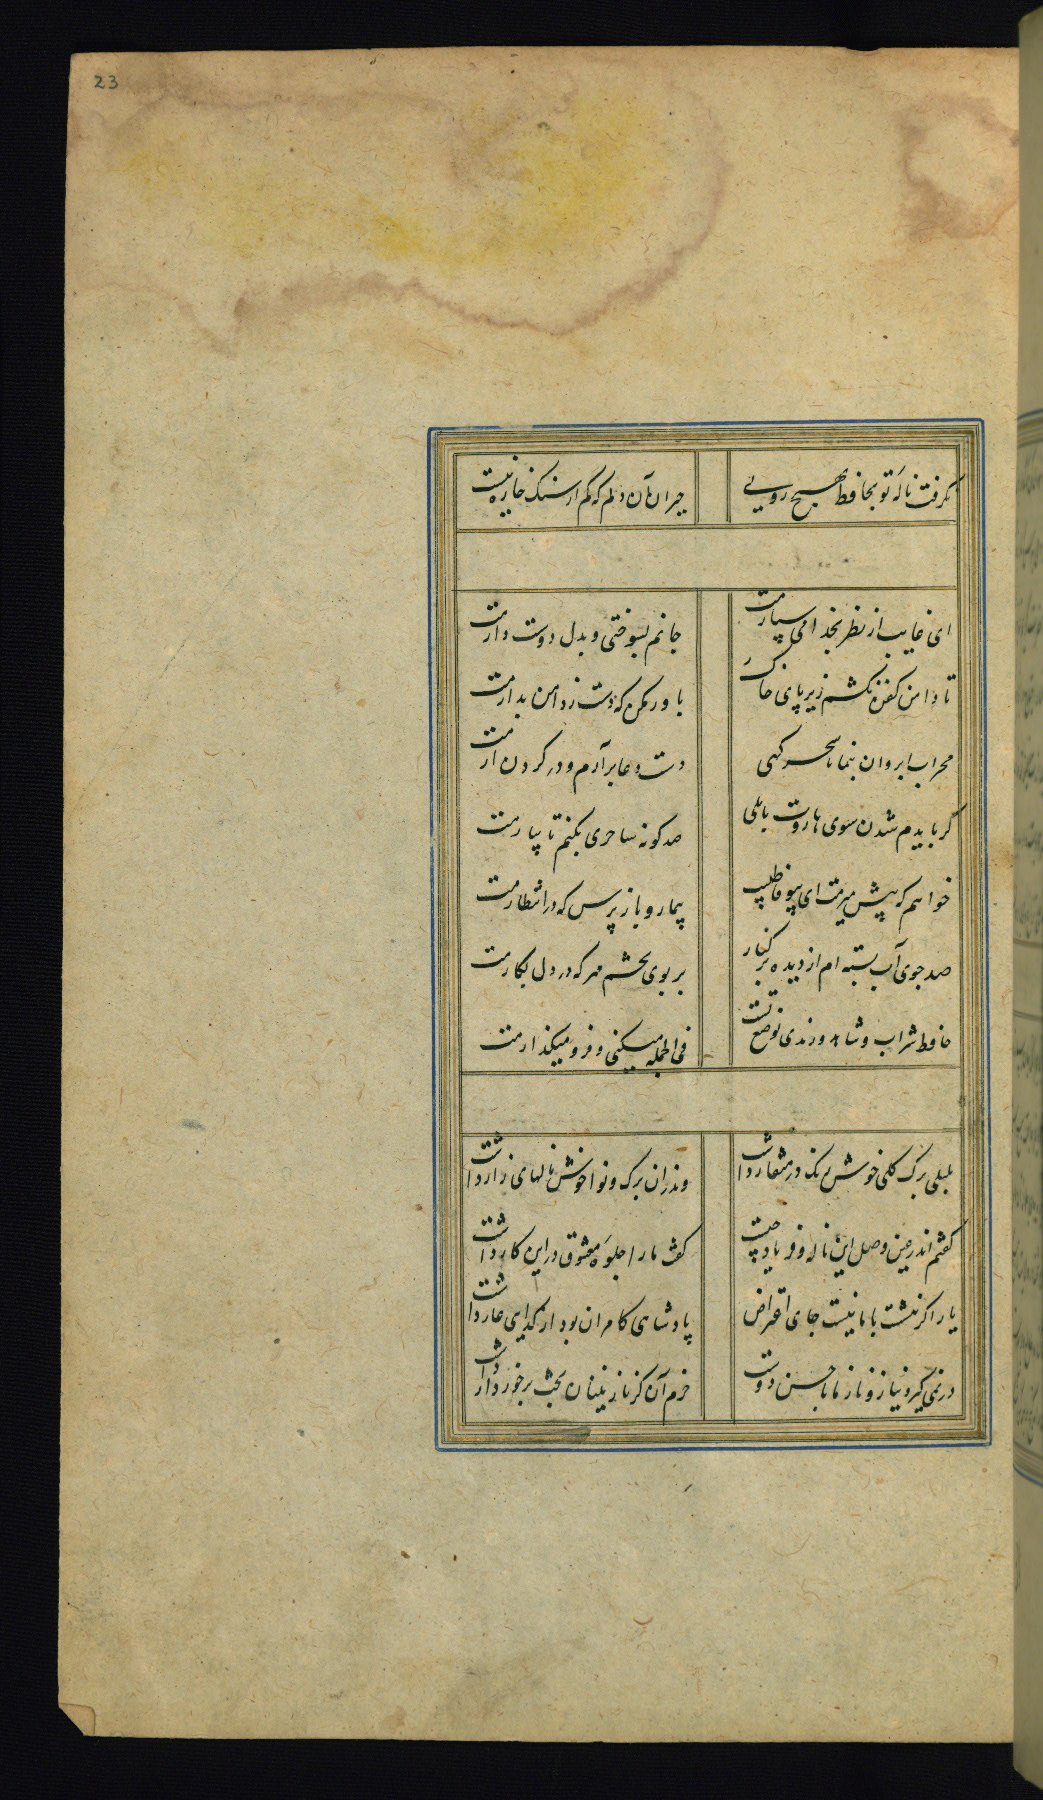 23
نگرفت نالهٔ تو بحافظ بهیچ رویی
حیران آن دلم که کم از سنک خاره نیست
ای غایب از نظر بخدا می سپارمت
جانم بسوختی و بدل دوست دارمت
تا دامن کفن نکشم زیر پای خاک
باور مکن که دست ز دامن بدارمت
محراب ابروان بنما تا سحر کهی
دست دعا برآرم و در کردن آرمت
کر بایدم شدن سوی هاروت بابلی
صد کونه ساحری بکنم تا بیارمت
خواهم که پیش میرمت ای بیوفا طبیب
بیمار و باز پرس که در انتظارمت
صد جوی آب بسته ام از دیده بر کنار
بر بوی تخم مهر که در دل بکارمت
حافظ شراب و شاهد و رندی نه وضع تست
فی الجمله میکنی و فرو میکذارمت
بلبلی برک کلی خوش رنک در منقار داشت
وندران برک و نوا خوش نالهای زار داشت
کفتم اندر عین وصل این ناله و فریاد چیست
کفت ما را جلوهٔ معشوق در این کار داشت
یار اکر ننشست با ما نیست جای اعتراض
پادشاهی کامران بود از کدایی عار داشت
در نمی کیرد نیاز و ناز ما با حسن دوست
خرم آن کز نازنینان بخت برخوردار داشت